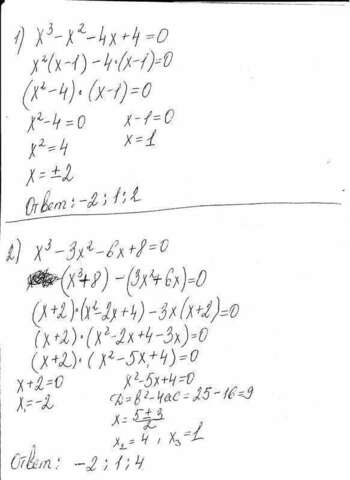 1) x³-x²-4x+4=0
x²(x-1)-4·(x-1)=0
(x²-4)·(x-1)=0
x²-4=0 x-1=0
x²=4 x=1
x=±2
Ответ: -2; 1; 2
2) x³-3x²-6x+8=0
(x³+8)-(3x²+6x)=0
(x+2)·(x²-2x+4)-3x(x+2)=0
(x+2)·(x²-2x+4-3x)=0
(x+2)·(x²-5x+4)=0
x+2=0 x²-5x+4=0
x₁=-2 D=b²-4ac=25-16=9
x=(5±3)/2
x₂=4, x₃=1
Ответ: -2; 1; 4